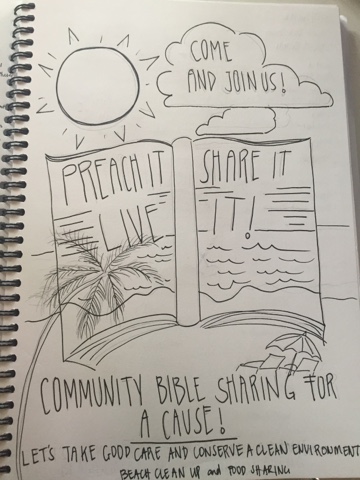 COME
AND JOIN US!
PREACH IT
LIVE
SHARE IT
IT!
COMMUNITY BIBLE SHARING FOR
A CAUSE!
LET'S TAKE GOOD CARE AND CONSERVE A CLEAN ENVIRONMENT
BEACH CLEAN UP and FOOD SHARING